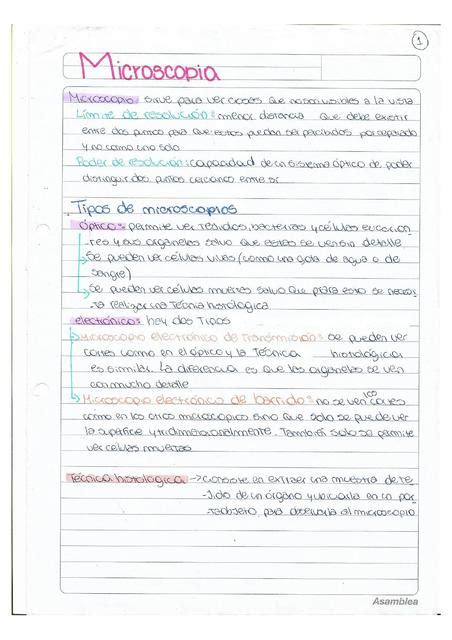 1
Microscopia
Microscopio: sirve para ver cosas que no son visibles a la vista
Límite de resolución: menor distancia que debe existir
entre dos puntos para que estos puedan ser percibidos por separado
y no como uno solo
Poder de resolución: capacidad de un sistema óptico de poder
distinguir dos puntos cercanos entre sí.
Tipos de microscopios
óptico: permite ver tejidos, bacterias y células eucarion-
tes y sus organelas salvo que estas se ven sin detalle
Se pueden ver células vivas (como una gota de agua o de
sangre)
Se pueden ver células muertas salvo que para esto se necesi-
ta realizar una técnia histológica
electrónico: hay dos tipos
Microscopio electrónico de transmisión: se pueden ver
cortes como en el óptico y la técnica histológica
es similar. La diferencia es que las organelas se ven
con mucho detalle
Microscopio electrónico de barrido: no se ven cortes
como en los otros microscopios sino que solo se puede ver
la superficie y tridimensionalmente. También solo se permite
ver células muertas
Técnica histológica → consiste en extraer una muestra de te-
jido de un órgano y ubicarla en un por-
taobjeto, para observarla al microscopio
Asamblea